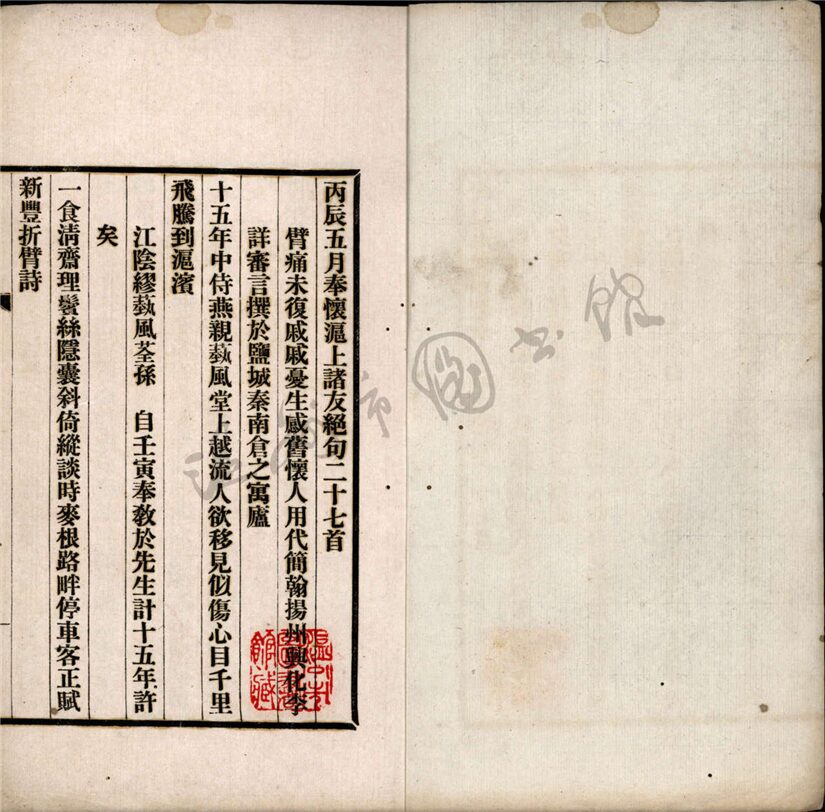 丙辰五月奉懷滬上諸友絕句二十七首
臂痛未復戚戚憂生感舊懷人用代簡翰揚州興化李
詳審言撰於鹽城秦南倉之寓廬
十五年中侍燕親藝風堂上越流人欲移見似傷心目千里
飛騰到滬濱
江陰繆藝風荃孫 自壬寅奉教於先生計十五年許
矣
一食淸齋理鬢絲隱囊斜倚縱談時麥根路畔停車客正賦
新豐折臂詩
溫州市圖書館藏
溫州市圖书馆